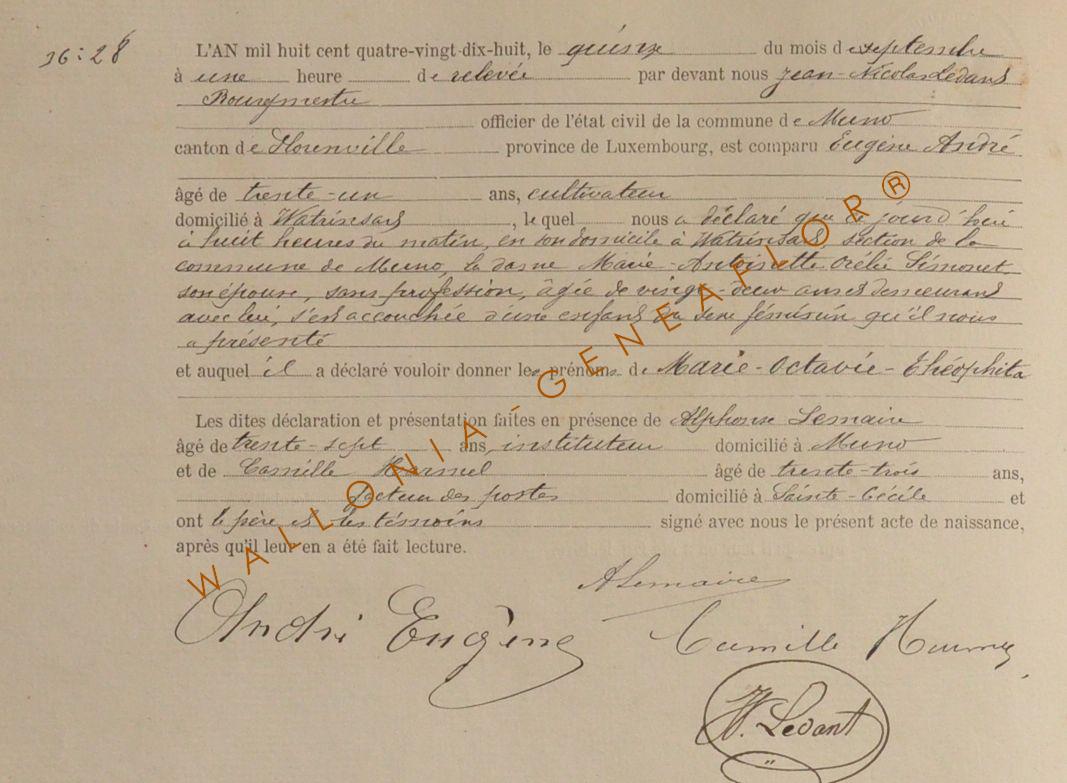 36:28
L'AN mil huit cent quatre-vingt-dix-huit, le quinze du mois de septembre
à une heure de relevée par devant nous Jean-Nicolas Ledant
Bourgmestre
officier de l'état civil de la commune de Muno
canton de Florenville province de Luxembourg, est comparu Eugène André
âgé de trente-un ans, cultivateur
domicilié à Watrinsart, lequel nous a déclaré que ce jourd'hui
à huit heures du matin, en son domicile à Watrinsart, section de la
commune de Muno, la dame Marie-Antoinette Orélie Simonet
son épouse, sans profession, âgée de vingt-deux ans et demeurant
avec lui, s'est accouchée d'une enfant du sexe féminin qu'il nous
a présenté
et auquel il a déclaré vouloir donner les prénoms de Marie-Octavie-Théophita
Les dites déclaration et présentation faites en présence de Alphonse Lemaire
âgé de trente-sept ans, instituteur domicilié à Muno
et de Camille âgé de trente-trois ans,
facteur des postes domicilié à Sainte-Cécile et
ont le père et les témoins signé avec nous le présent acte de naissance,
après qu'il leur en a été fait lecture.
ALemaire
André Eugène
Camille
N. Ledant
WALLONIA-GENEAFLOR®